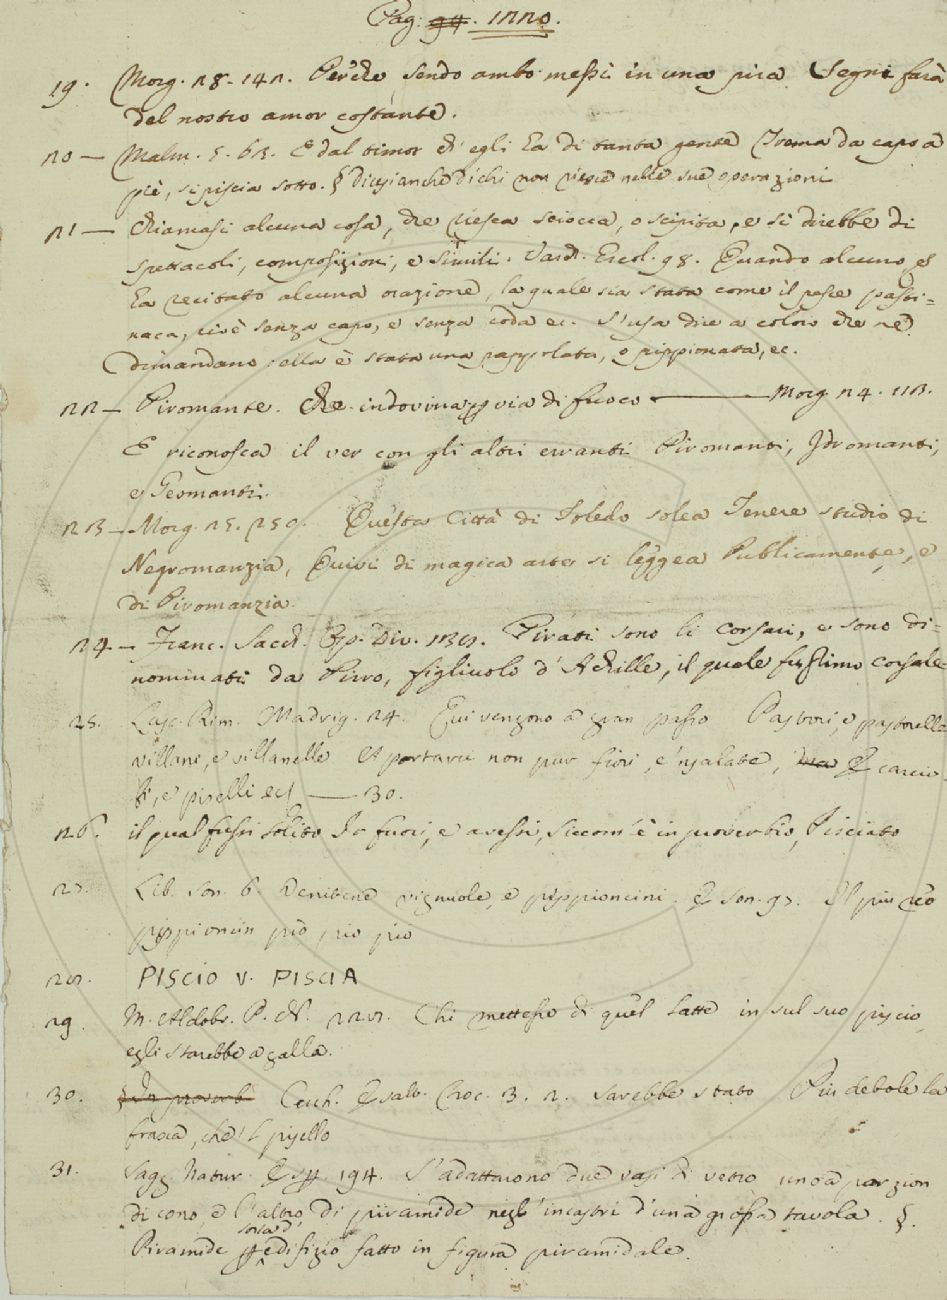 Pag. 94. 1220.
19. Morg. 28. 142. Perchè sendo ambo messi in una pira Segni farà
del nostro amor costante.
20 — Malm. 5. 63. E dal timor ch'egli ha di tanta gente Trema da capo a
piè, si piscia sotto. § dicesi anche di chi non riesce nelle sue operazioni
21 — Chiamasi alcuna cosa, che riesca sciocca, o scipita, e si direbbe di
spettacoli, composizioni, e simili. Varch. Ercol. 98. Quando alcuno
ha recitato alcuna orazione, la quale sia stata come il pesce pasti=
naca, cioè senza capo, e senza coda ec. s'usa dire a coloro che ne
dimandano ella è stata una pappolata, o pippionata, ec.
22 — Piromante. Che indovina per via di fuoco — Morg. 24. 113.
E riconosca il ver con gli altri erranti Piromanti, Idromanti,
e Geomanti.
23 — Morg. 25. 259. Questa Città di Toledo solea Tenere studio di
Negromanzia, Quivi di magica arte si leggea Pubblicamente, e
di Piromanzia.
24. — Franc. Sacch. Op. Div. Pirati sono li corsari, e sono di=
nominati da Pirro, figliuolo d'Achille, il quale fu ssimo corsale
25. Lasc. Rim. Madrig. 24. Qui vengono a gran passo Pastori, e pastorelle
villani, e villanelle A portarci non pur fiori, e 'nsalate, & carcio-
fi, e piselli &c — 30.
26. il qual fussi solito Ir fuori, e avessi, siccom'è in proverbio, Pisciato
27 Lib. son. 6. vignuole, e pippioncini. & son. 97. Il piu reo
pippioncin pio pio pio
28. PISCIO V. PISCIA
29 M. Aldobr. P. N. 228. Chi mettesse di quel latte in sul suo piscio,
egli starebbe a galla.
30. § In proverb. Cecch. Esalt. Croc. 3. 2. Sarebbe stato Più debole la
frasca, che 'l pisello
31. Sagg. Natur. Esp. 194. S'adattarono due vasi di vetro uno a porzion
di cono, e l'altro di piramide negl'incastri d'una grossa tavola. §.
Piramide edifizio fatto in figura piramidale.
sorta d'